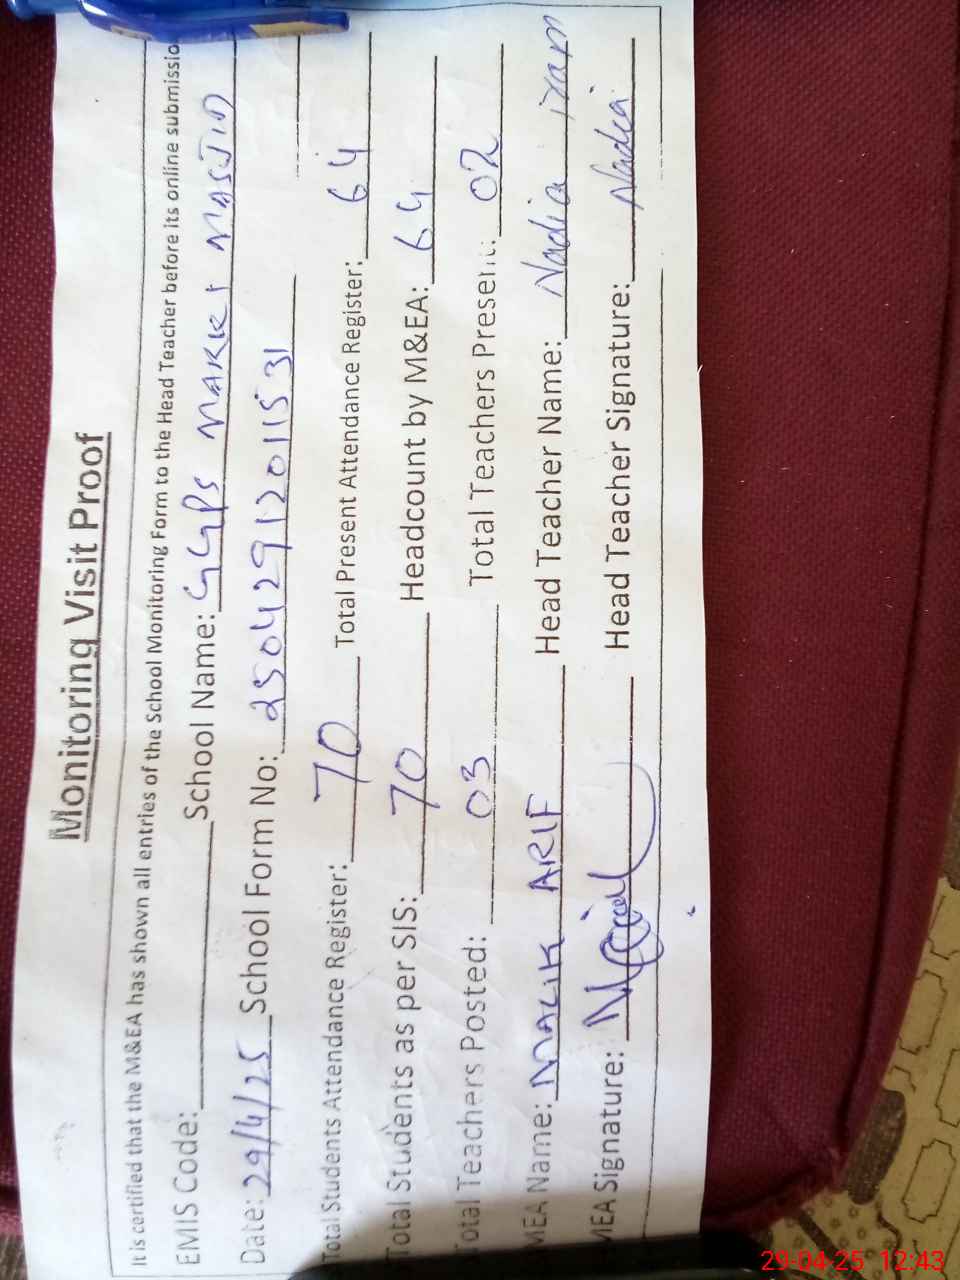 Monitoring Visit Proof
It is certified that the M&EA has shown all entries of the School Monitoring Form to the Head Teacher before its online submissio
EMIS Code: School Name: GGPS MARKET MASJID
Date: 29/4/25 School Form No: 25042912011531
Total Students Attendance Register: 70 Total Present Attendance Register: 64
Total Students as per SIS: 70 Headcount by M&EA: 64
Total Teachers Posted: 03 Total Teachers Present: 02
MEA Name: MALIK ARIF Head Teacher Name: Nadia iram
MEA Signature: Head Teacher Signature: Nadia
29-04-25 12:43